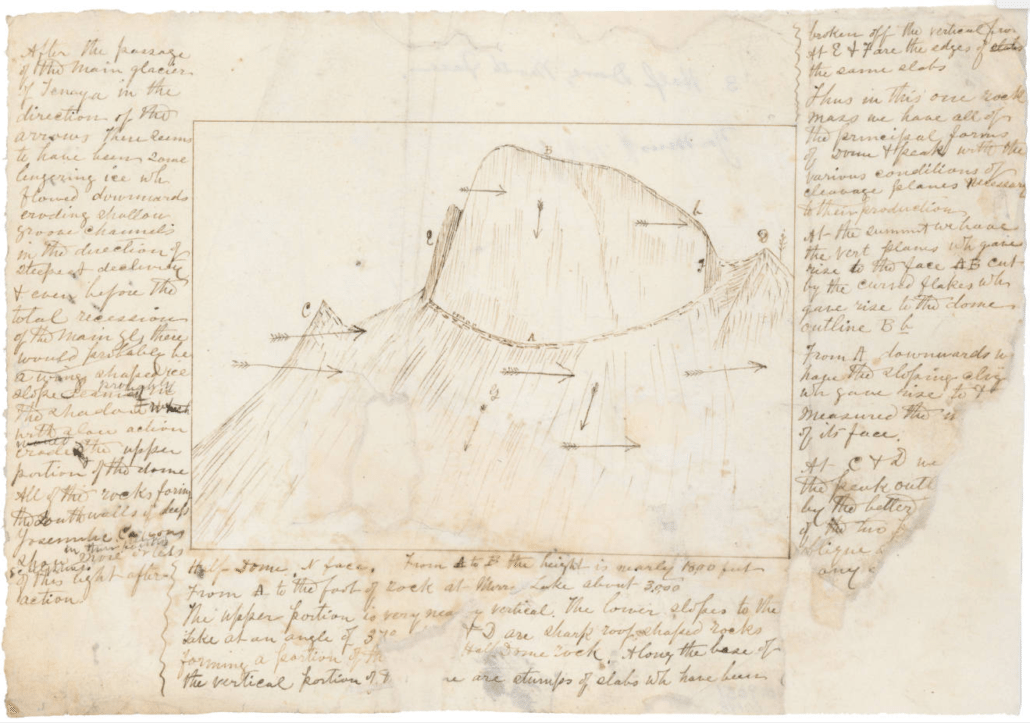 After the passage
of the main glacier
of Tenaya in the
direction of the
arrows there seems
to have been some
lingering ice wh
flowed downwards
eroding shallow
groove channels
in the direction of
steepest declivity
& even before the
total recession
of the main Gl. there
would probably be
a shaped ice
slope
the shadow
with a slow action
the upper
portion of the dome
All of the rocks forming
the South walls of deep
Yosemite Canyons
in their
of this light after
action
Half Dome N face. From A to B the height is nearly 1800 feet
From A to the foot of rock at Mirror Lake about 3000
The upper portion is very near y vertical. The lower slopes to the
Lake at an angle of 37o & D are sharp roof shaped rocks
forming a portion of th Half Dome rock. Along the base of
the vertical portion of re are stumps of slabs wh have been
broken off the vertical
At E & F are the edges of
the same slabs
Thus in this one rock
mass we have all of
the principal forms
of Dome & peak with the
various conditions of
cleavage planes necessary
to their production
At the summit we have
the vert planes wh gave
rise to the face AB cut
by the curved flakes wh
gave rise to the dome
outline B b
From A downwards w
have the sloping
wh gave rise to &
measured the
of its face.
At C & D we
the peak outl
by the better
of the two
oblique
any
B
b
e
D
C
A
g